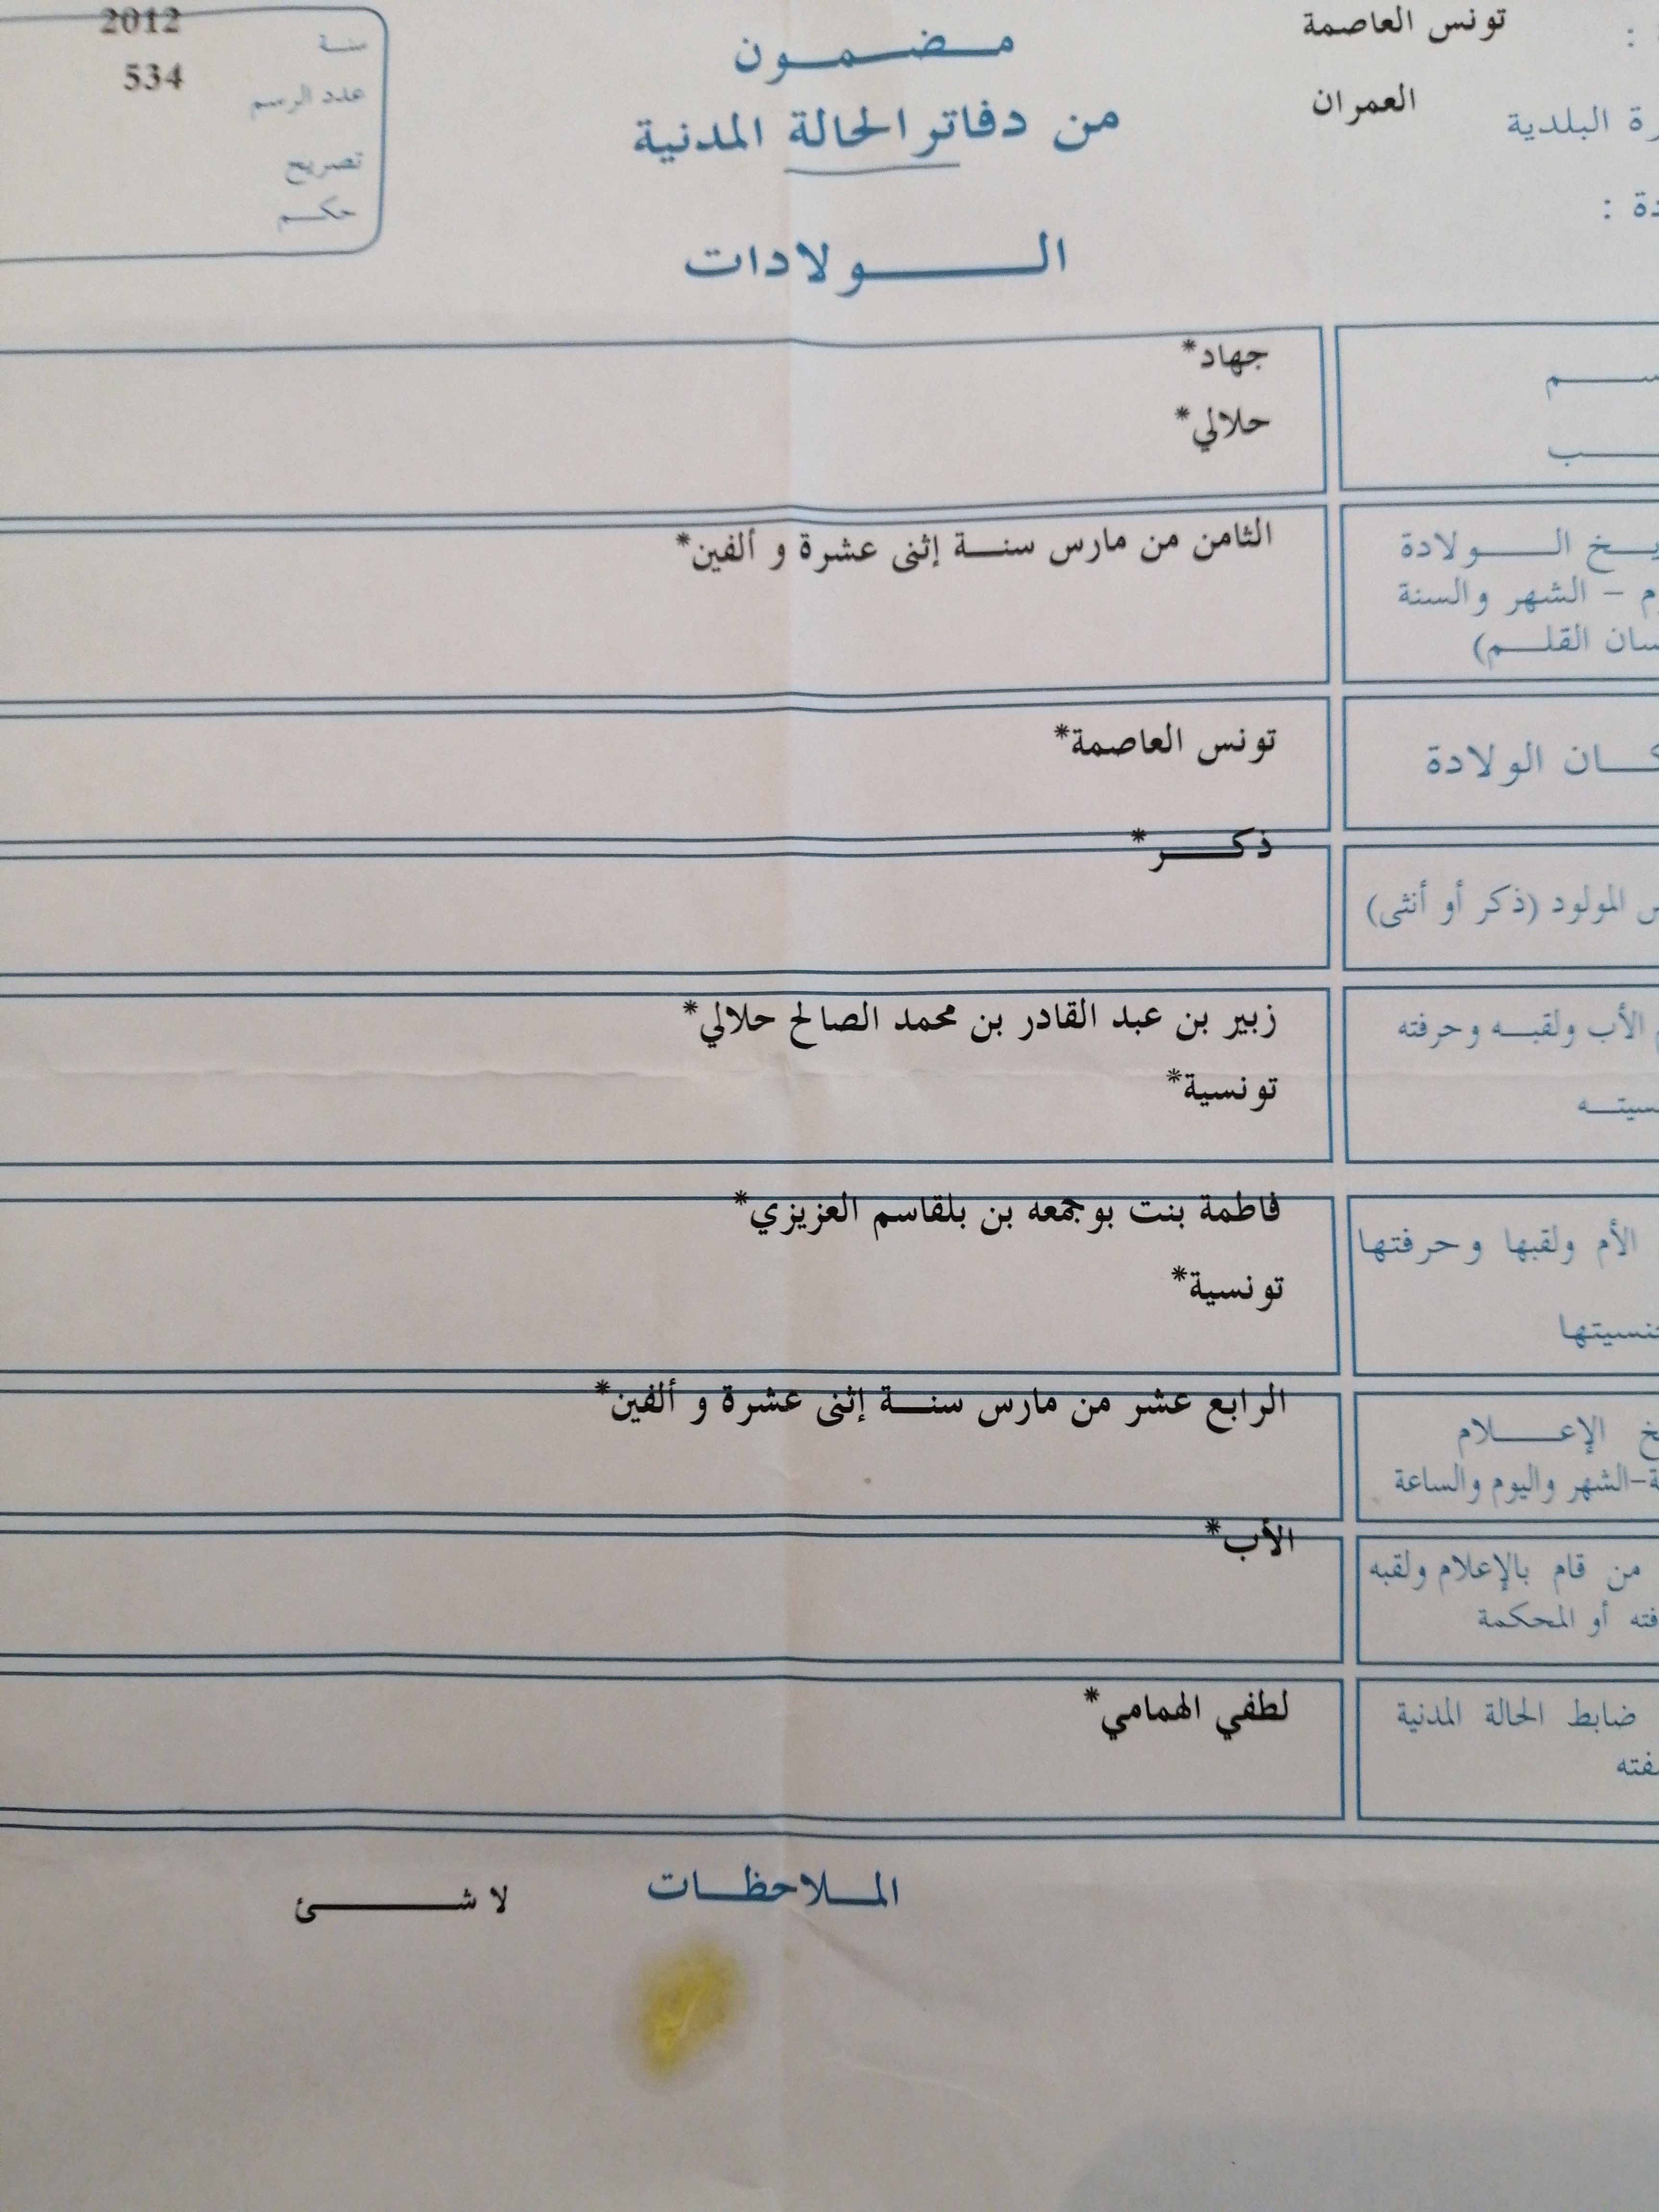 تونس العاصمة
العمران
البلدية
مضمون
من دفاتر الحالة المدنية
الولادات
2012
سنة
534
عدد الرسم
تصريح
حكم
جهاد*
حلالي*
الولادة
الثامن من مارس سنة إثنى عشرة و ألفين*
– الشهر والسنة
القلم)
الولادة
تونس العاصمة*
ذكر*
المولود (ذكر أو أنثى)
الأب ولقبه وحرفته
زبير بن عبد القادر بن محمد الصالح حلالي*
تونسية*
الأم ولقبها وحرفتها
فاطمة بنت بوجمعه بن بلقاسم العزيزي*
تونسية*
الإعلام
الرابع عشر من مارس سنة إثنى عشرة و ألفين*
-الشهر واليوم والساعة
من قام بالإعلام ولقبه
الأب*
أو المحكمة
ضابط الحالة المدنية
لطفي الهمامي*
الملاحظات
لا شئ